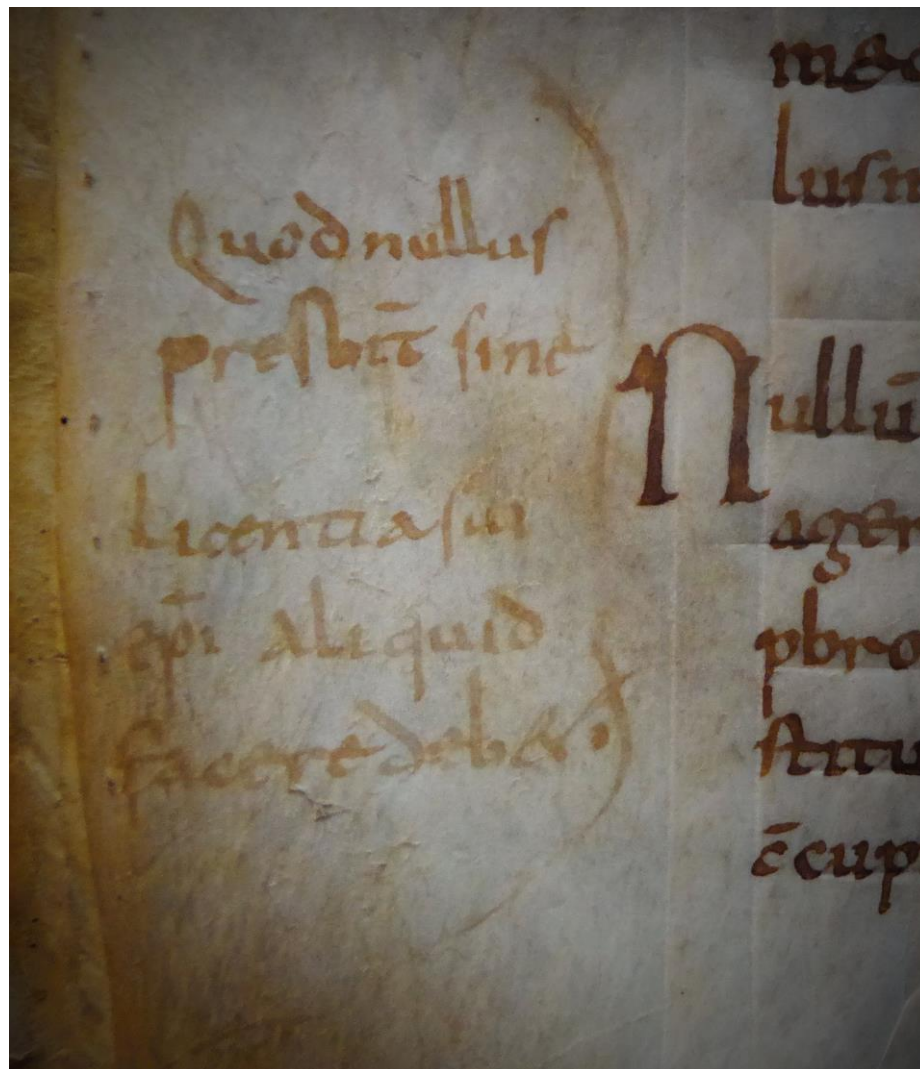 Quod nullus
presbit̄ sine
licentia sui
ep̄i aliquid
facere deb&·
lus
Nullū
ager
pbro
stitu
c̄cup